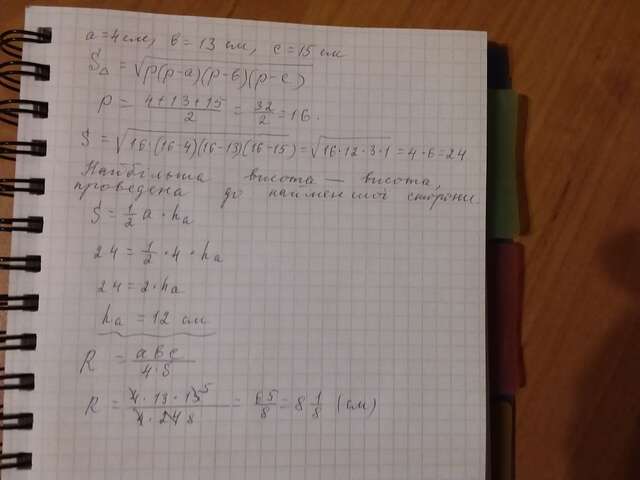 a = 4 см, b = 13 см, c = 15 см
S△ = √p(p-a)(p-b)(p-c)
p = 4+13+15/2 = 32/2 = 16.
S = √16·(16-4)(16-13)(16-15) = √16·12·3·1 = 4·6=24
Найбільша висота — висота,
проведена до найменшої сторони.
S = 1/2 a · ha
24 = 1/2 · 4 · ha
24 = 2 · ha
ha = 12 см
R = abc/4·S
R = 4·13·15 5/4·24 8 = 65/8 = 8 1/8 (см)